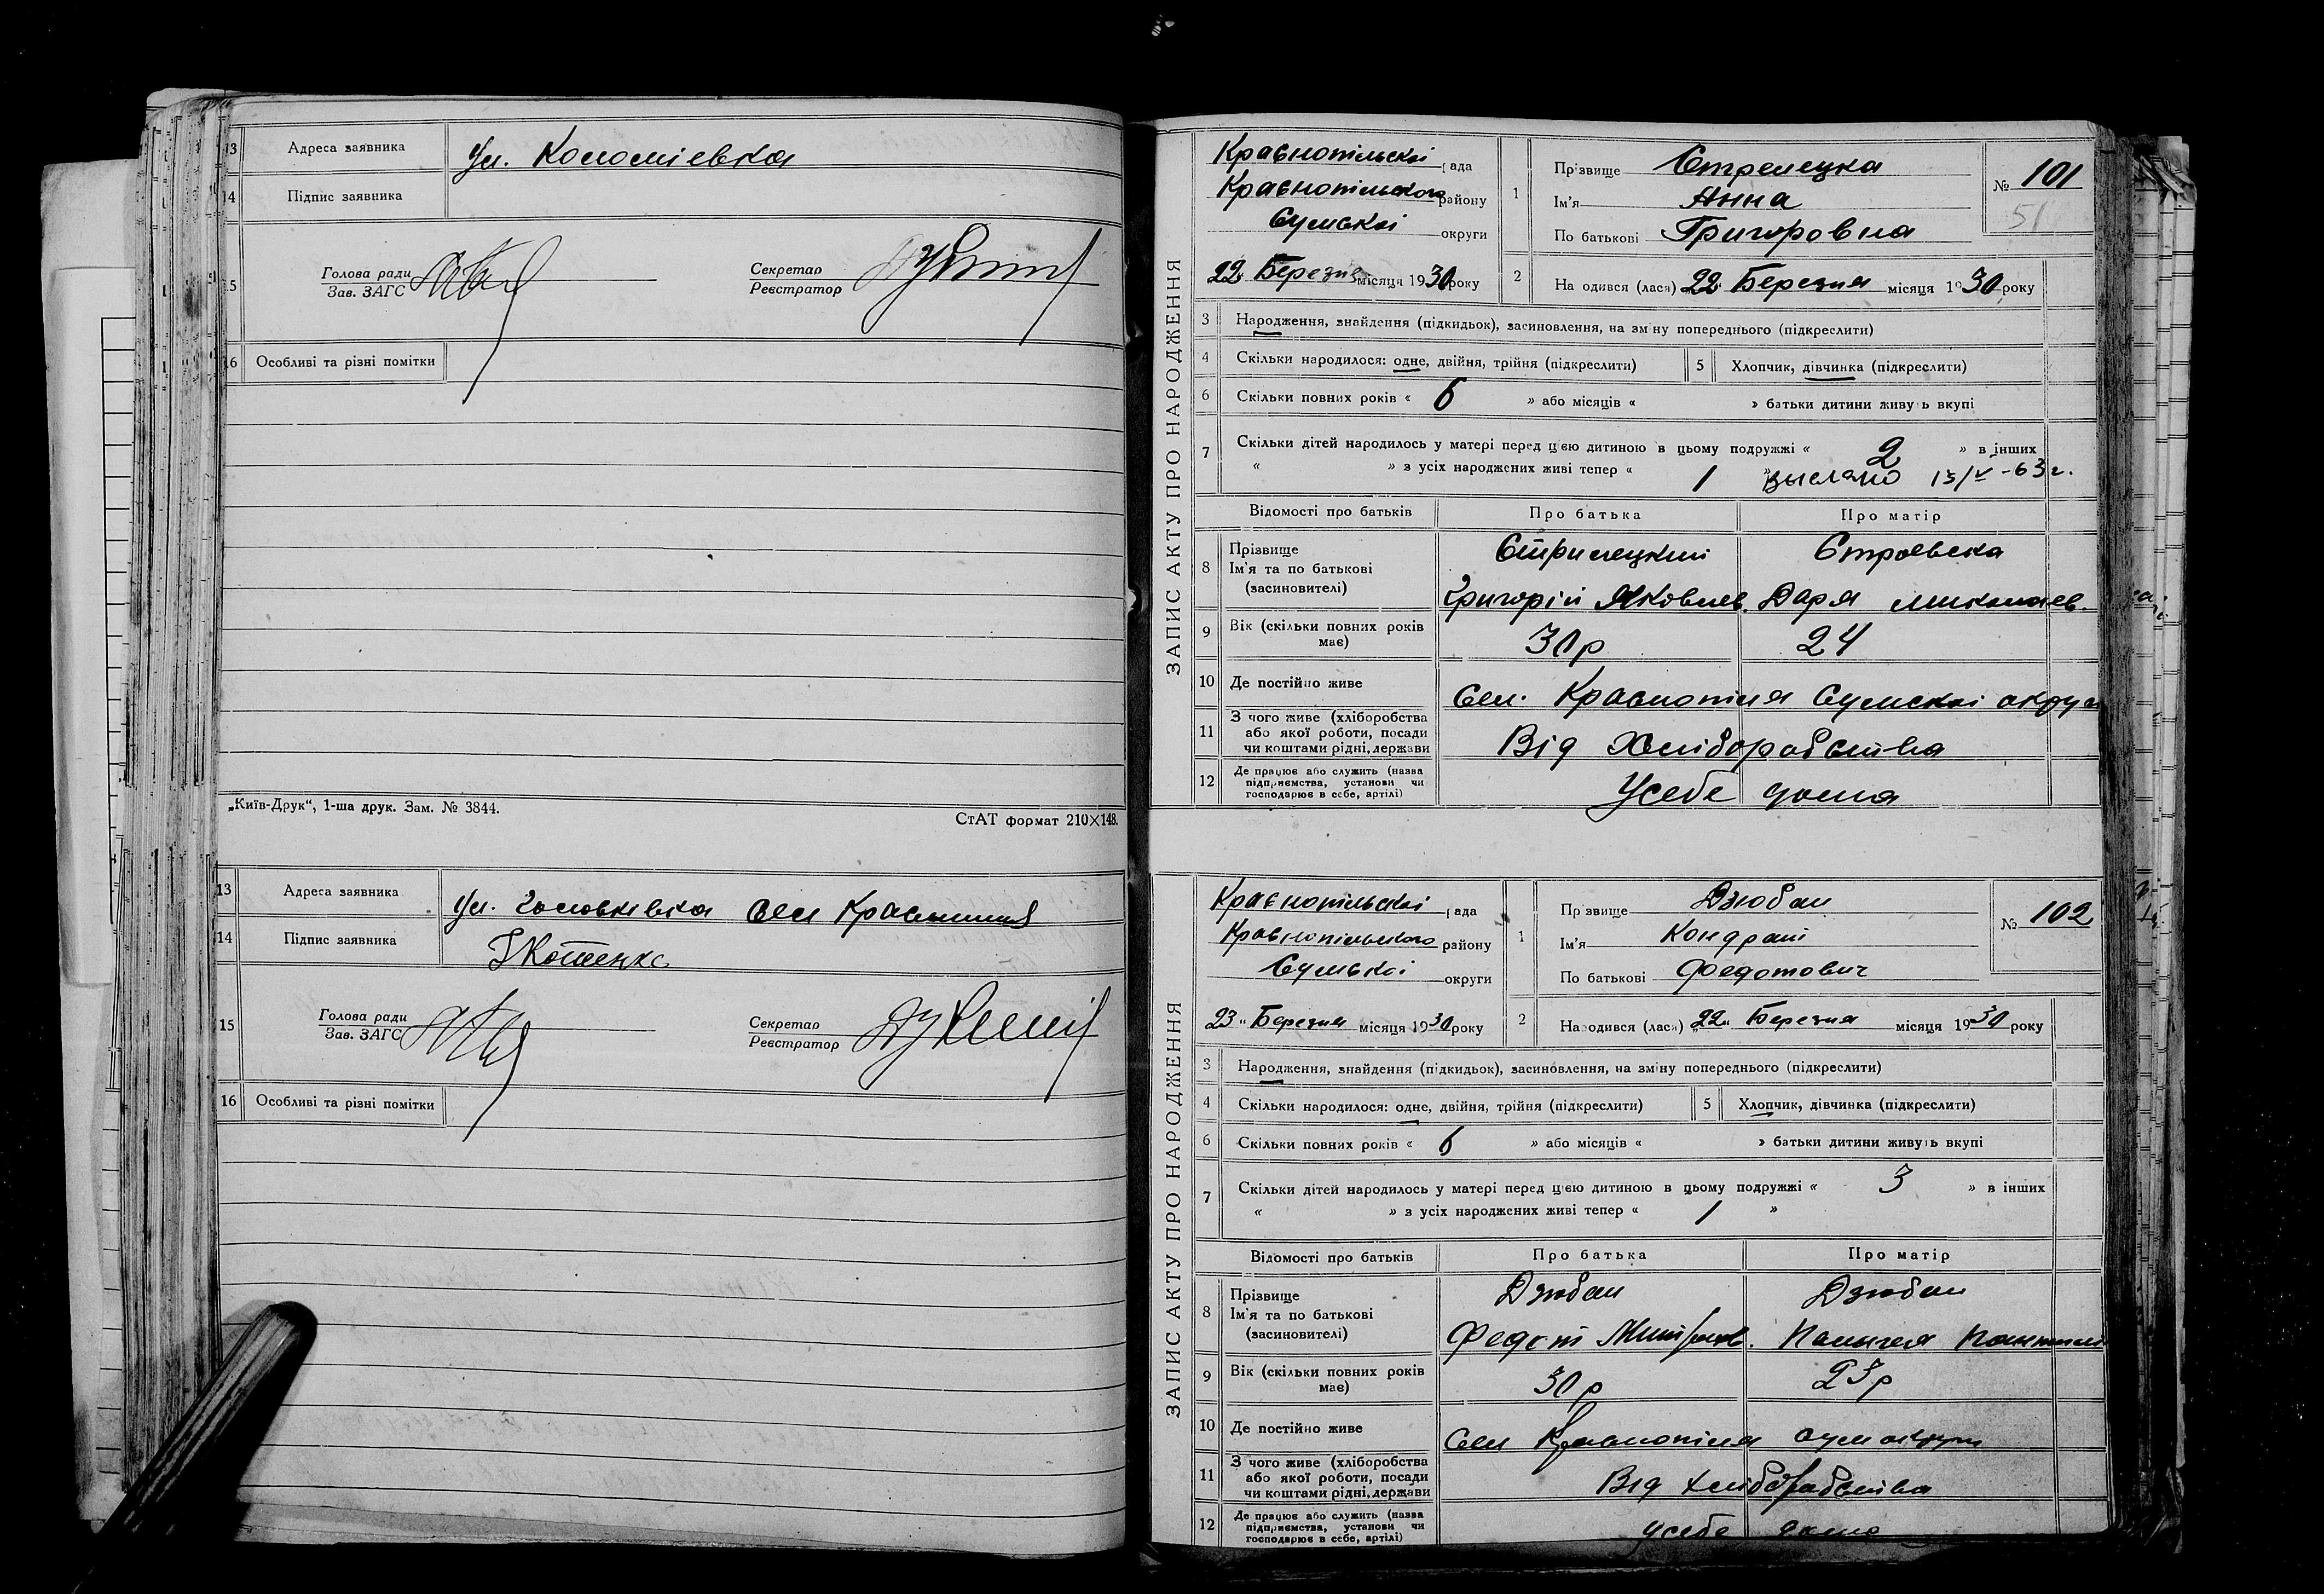 13 Адреса заявника ул. Коломіевка
14 Підпис заявника
15 Голова ради
Зав. ЗАГС
Секретар
Реєстратор
16 Особливі та різні помітки
„Київ-Друк“, 1-ша друк. Зам. № 3844.
СтАТ формат 210×148.
13 Адреса заявника ул. Головківка Сел
14 Підпис заявника
15 Голова ради
Зав. ЗАГС
Секретар
Реєстратор
16 Особливі та різні помітки
ЗАПИС АКТУ ПРО НАРОДЖЕННЯ
Краснопільскоі рада
Краснопільского району
Сумськоі округи
22 Березня місяця 1930 року
1 Прізвище Стрелецка
Ім'я Анна
По батькові Григоровна
№ 101
51
2 Народився (лася) 22 Березня місяця 1930 року
3 Народження, знайдення (підкидьок), засиновлення, на зміну попереднього (підкреслити)
4 Скільки народилося: одне, двійня, трійня (підкреслити) 5 Хлопчик, дівчинка (підкреслити)
6 Скільки повних років « 6 » або місяців « » батьки дитини живуть вкупі
7 Скільки дітей народилось у матері перед цією дитиною в цьому подружжі « 2 » в інших
« » з усіх народжених живі тепер « 1 »
выслано 15/V-63г.
Відомості про батьків Про батька Про матір
8 Прізвище
Ім'я та по батькові
(засиновителі)
Стрилецкий Строевска
Григорій Яковлев. Даря Миколаев.
9 Вік (скільки повних років має) 30р 24
10 Де постійно живе Сел. Краснопіля Сумскоі округи
11 З чого живе (хліборобства
або якої роботи, посади
чи коштами рідні, держави
Від Хліборобства
12 Де працює або служить (назва
підприємства, установи чи
господарює в себе, артілі)
Усебе дома
ЗАПИС АКТУ ПРО НАРОДЖЕННЯ
Краснопільскоі рада
Краснопільского району
Сумськоі округи
23 Березня місяця 1930 року
1 Прізвище Дзюбан
Ім'я Кондрат
По батькові Федотович
№ 102
2 Народився (лася) 22 Березня місяця 1930 року
3 Народження, знайдення (підкидьок), засиновлення, на зміну попереднього (підкреслити)
4 Скільки народилося: одне, двійня, трійня (підкреслити) 5 Хлопчик, дівчинка (підкреслити)
6 Скільки повних років « 6 » або місяців « » батьки дитини живуть вкупі
7 Скільки дітей народилось у матері перед цією дитиною в цьому подружжі « 3 » в інших
« » з усіх народжених живі тепер « 1 »
Відомості про батьків Про батька Про матір
8 Прізвище
Ім'я та по батькові
(засиновителі)
Дзюбан Дзюбан
Федот
9 Вік (скільки повних років має) 30р 23р
10 Де постійно живе Сел Краснопіля Сум округи
11 З чого живе (хліборобства
або якої роботи, посади
чи коштами рідні, держави
Від Хліборобства
12 Де працює або служить (назва
підприємства, установи чи
господарює в себе, артілі)
усебе дома